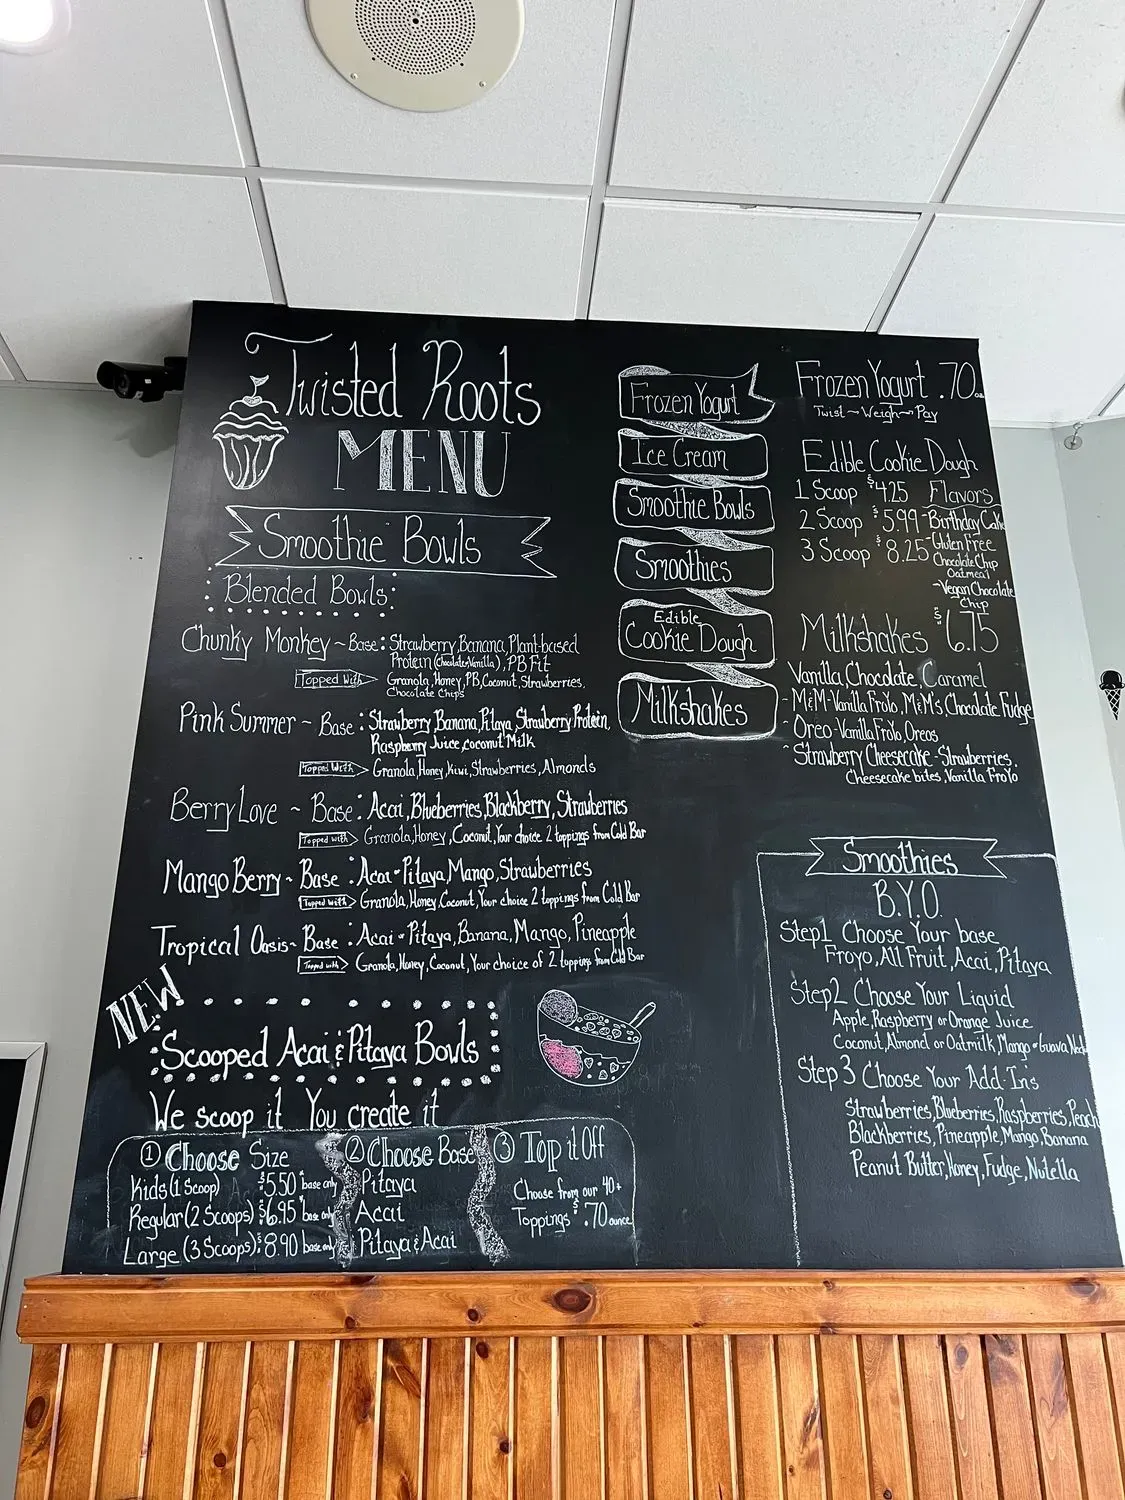 Twisted Roots
MENU
Smoothie Bowls
Blended Bowls:
Chunky Monkey ~ Base: Strawberry, Banana, Plant-based
Protein (Chocolate, Vanilla), PB Fit
Topped With
Granola, Honey, PB, Coconut, Strawberries,
Chocolate Chips
Pink Summer ~ Base: Strawberry, Banana, Pitaya, Strawberry Protein,
Raspberry Juice, Coconut Milk
Topped With
Granola, Honey, Kiwi, Strawberries, Almonds
Berry Love ~ Base: Acai, Blueberries, Blackberry, Strawberries
Topped with
Granola, Honey, Coconut, Your choice 2 toppings from Cold Bar
Mango Berry ~ Base: Acai - Pitaya, Mango, Strawberries
Topped With
Granola, Honey, Coconut, Your choice 2 toppings from Cold Bar
Tropical Oasis ~ Base: Acai - Pitaya, Banana, Mango, Pineapple
Topped with
Granola, Honey, Coconut, Your choice of 2 toppings from Cold Bar
NEW
Scooped Acai & Pitaya Bowls
We scoop it You create it
1 Choose Size
Kids (1 Scoop) $5.50 base only
Regular (2 Scoops) $6.95 base only
Large (3 Scoops) $8.90 base only
2 Choose Base
Pitaya
Acai
Pitaya & Acai
3 Top it Off
Choose from our 40+
Toppings $.70 ounce
Frozen Yogurt
Ice Cream
Smoothie Bowls
Smoothies
Edible
Cookie Dough
Milkshakes
Frozen Yogurt .70 oz
Twist ~ Weigh ~ Pay
Edible Cookie Dough
1 Scoop $4.25 Flavors
2 Scoop $5.99 - Birthday Cake
3 Scoop $8.25 - Gluten Free
Chocolate Chip
Oatmeal
- Vegan Chocolate
Chip
Milkshakes $6.75
Vanilla, Chocolate, Caramel
- M&M - Vanilla FroYo, M&M's, Chocolate Fudge
- Oreo - Vanilla FroYo, Oreos
- Strawberry Cheesecake - Strawberries,
Cheesecake bites, Vanilla FroYo
Smoothies
B.Y.O.
Step 1 Choose Your base
Froyo, All Fruit, Acai, Pitaya
Step 2 Choose Your Liquid
Apple, Raspberry or Orange Juice
Coconut, Almond or Oatmilk, Mango - Guava
Step 3 Choose Your Add-Ins
Strawberries, Blueberries, Raspberries, Peach
Blackberries, Pineapple, Mango, Banana
Peanut Butter, Honey, Fudge, Nutella